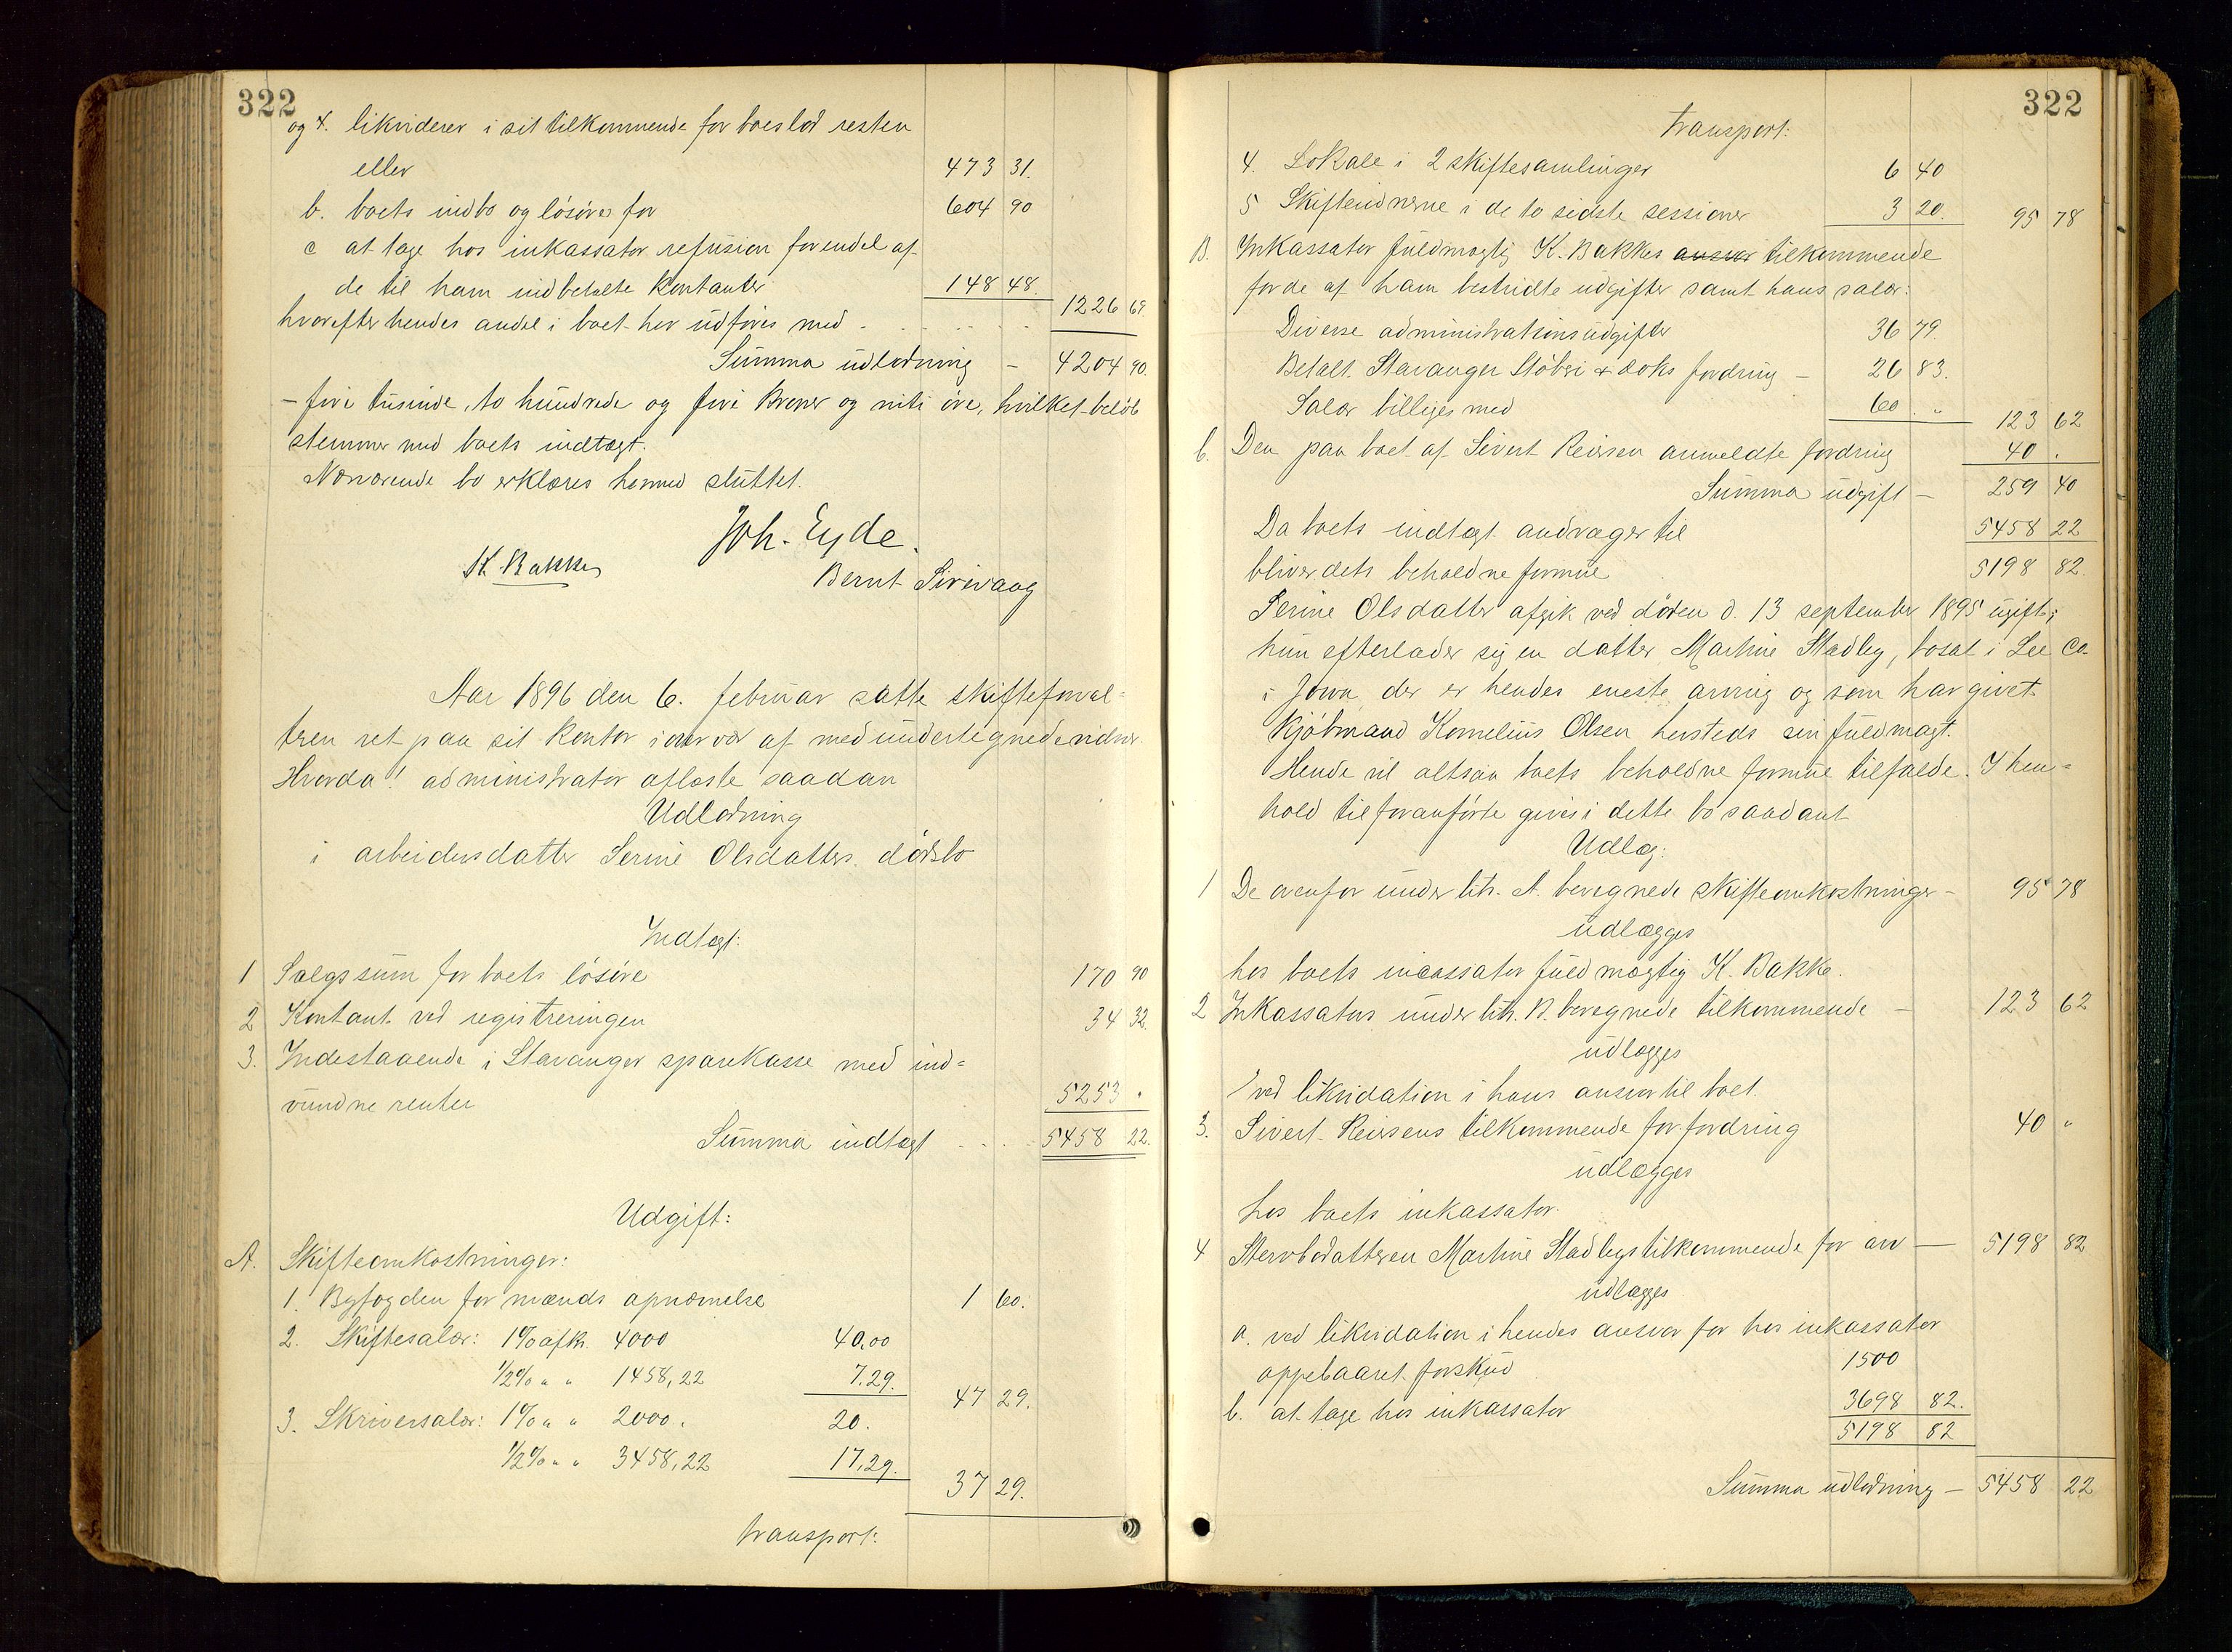 322
og 4. likviderer i sit tilkommende for boeslod resten
eller 473 31.
b. boets indbo og løsøre for 604 90
c at tage hos inkassator refusion for endel af
de til ham indbetalte kontanter 148 48.
hvorefter hendes andel i boet her udføres med - 1226 69
Summa udlodning - 4204 90.
- fire tusinde, to hundrede og fire kroner og niti øre, hvilket beløb
stemmer med boets indtægt.
Nærværende bo erklæres hermed sluttet.
Joh. Eyde.
K. Bakke
Bernt Sirevaag
Aar 1896 den 6. februar satte skifteforval-
teren ret paa sit kontor i overvær af medundertegnede vidner.
Hvorda! administrator aflæste saadan
Udlodning
i arbeidersdatter Serine Olsdatters dødsbo
Indtægt:
1 Salgssum for boets løsøre 170 90
2 Kontant ved registreringen 34 32.
3. Indestaaende i Stavanger sparekasse med ind-
vundne renter 5253 .
Summa indtægt 5458 22.
Udgift:
A. Skifteomkostninger:
1. Byfogden for mænds opnævnelse 1 60.
2. Skiftesalær: 1% af kr. 4000 40,00
1/2% " " 1458,22 7.29. 47 29.
3. Skriversalær: 1% " " 2000. 20.
1/2% " " 3458,22 17,29. 37 29.
transport:
322
transport:
4. Lokale i 2 skiftesamlinger 6 40
5 Skiftevidnerne i de to sidste sessioner 3 20. 95 78
B. Inkassator fuldmægtig K. Bakkes ansvar tilkommende
for de af ham bestridte udgifter samt hans salær:
Diverse administrationsudgifter 36 79.
Betalt Stavanger Støberi & doks fordring - 26 83.
Salær billiges med 60 . " 123 62
C. Den paa boet af Sivert Reiersen anmeldte fordring 40 .
Summa udgift - 259 40
Da boets indtægt andrager til 5458 22
bliver dets beholdne formue 5198 82.
Serine Olsdatter afgik ved døden d. 13 september 1895 ugift;
hun efterlader sig en datter Martine Stadley, bosat i Lee Co.
i Jowa der er hendes eneste arving og som har givet
kjøbmand Kornelius Olsen hersteds sin fuldmagt.
Hende vil altsaa boets beholdne formue tilfalde. I hen-
hold til foranførte gives i dette bo saadant
Udlæg:
1 De ovenfor under litr. A. beregnede skifteomkostninger - 95 78
udlægges
hos boets incassator fuldmægtig K. Bakke.
2 Inkassators under litr. B. beregnede tilkommende - 123 62
udlægges
ved likvidation i hans ansvar til boet.
3. Sivert Reiersens tilkommende for fordring 40 "
udlægges
hos boets inkassator.
4 Stervbodatteren Martine Stadleys tilkommende for arv - 5198 82
udlægges
a. ved likvidation i hendes ansvar for hos inkassator
oppebaaret forskud 1500
b. at tage hos inkassator 3698 82.
5198 82
Summa udlodning - 5458 22